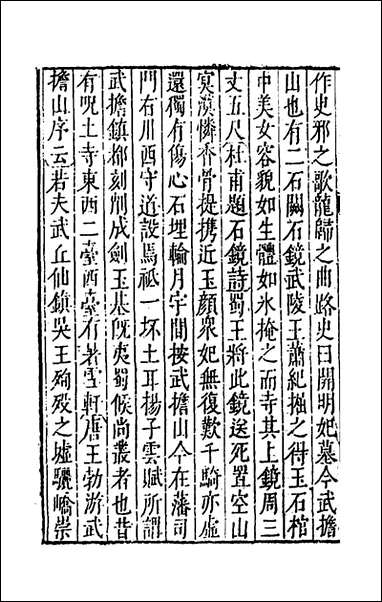 作史邪之歌龍歸之曲路史曰開明妃墓今武擔
山也有二石闕石鏡武陵王蕭紀掘之得玉石棺
中美女容貌如生體如氷掩之而寺其上鏡周三
丈五尺杜甫題石鏡詩蜀王將此鏡送死置空山
㝠漠憐香骨提携近玉顔衆妃無復歎千騎亦虚
還獨有傷心石埋輪月宇間按武擔山今在藩司
門右川西守道設焉祗一坏土耳揚子雲賦所謂
武擔鎮都刻削成劍玉基旣夷蜀候尚叢者也昔
有呪土寺東西二臺西臺有著雪軒唐王勃游武
擔山序云若夫武丘仙鎮吳王殉歿之墟驪嶠崇